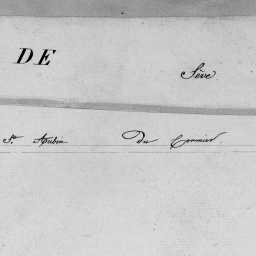 DE
Sève
St. Aubin Du Cormier